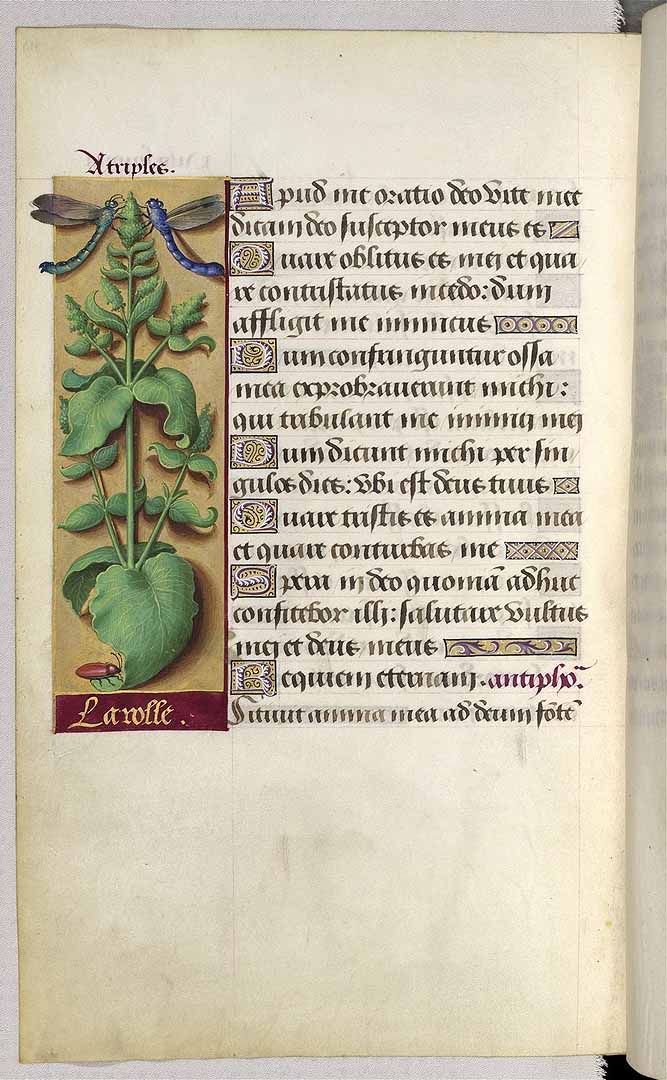 Atriples.
Apud me oratio deo vite mee
dicam deo susceptor meus es
Quare oblitus es mei et qua
re contristatus incedo: dum
affligit me inimicus
Dum confringuntur ossa
mea exprobraverunt michi:
qui tribulant me inimici mei
Dum dicunt michi per sin
gulos dies: Ubi est deus tuus
Quare tristis es anima mea
et quare conturbas me
Spera in deo quoniā adhuc
confitebor illi: salutare vultus
mei et deus meus
Requiem eternam. antipho.
Sitivit anima mea ad deum fōtē
Larolle.